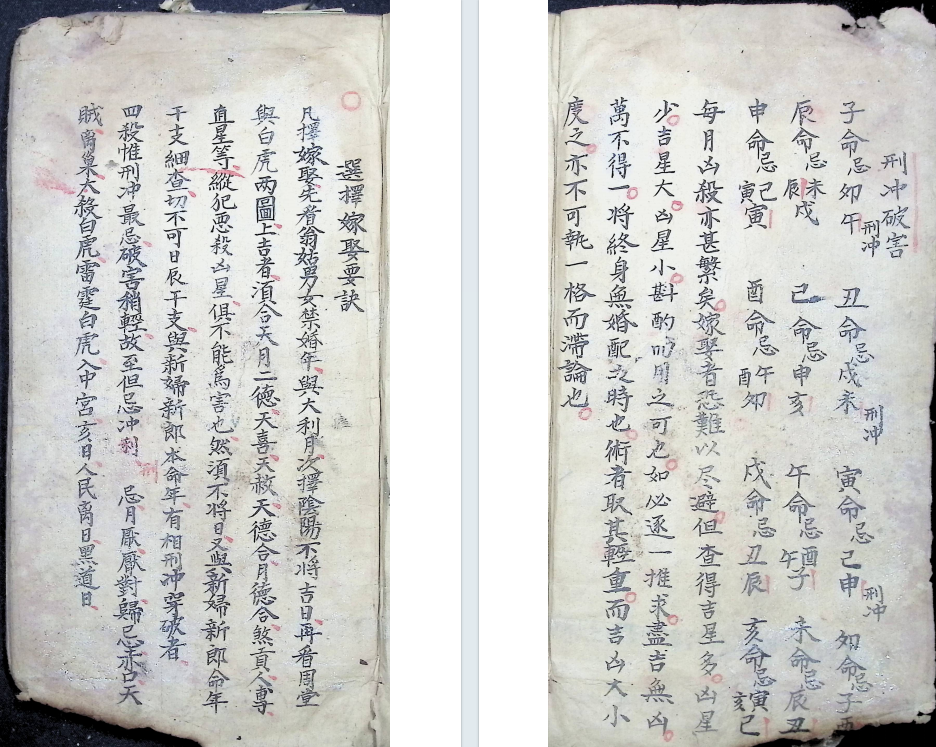 選擇嫁娶要訣
凡擇嫁娶先看翁姑男女禁婚年與大利月次擇陰陽不將吉日再看周堂
與白虎两圖上吉者須合天月二德天喜天赦天德合月德合煞貢人專
直星等縱犯恶殺凶星俱不能為害也然須不將日又與新婦新郎命年
干支細查切不可日辰干支與新婦新郎本命年有相刑冲穿破者
四殺惟刑冲最忌破害稍輕故至但忌冲刑 忌月厭厭對歸忌赤口天
賊离巢大殺白虎雷霆白虎入中宮亥日人民离日黑道日
刑冲破害
子命忌夘午刑冲 丑命忌戌未刑冲 寅命忌己申刑冲 夘命忌子酉
辰命忌辰未戌 己命忌申亥 午命忌午酉子 未命忌辰丑
申命忌寅己寅 酉命忌酉午夘 戌命忌丑辰 亥命忌亥寅己
每月凶殺亦甚繁矣嫁娶者恐難以尽避但查得吉星多凶星
少吉星大凶星小斟酌而用之可也如必逐一推求盡吉無凶
萬不得一将終身無婚配之時也術者取其輕重而吉凶大小
度之亦不可執一格而滯論也